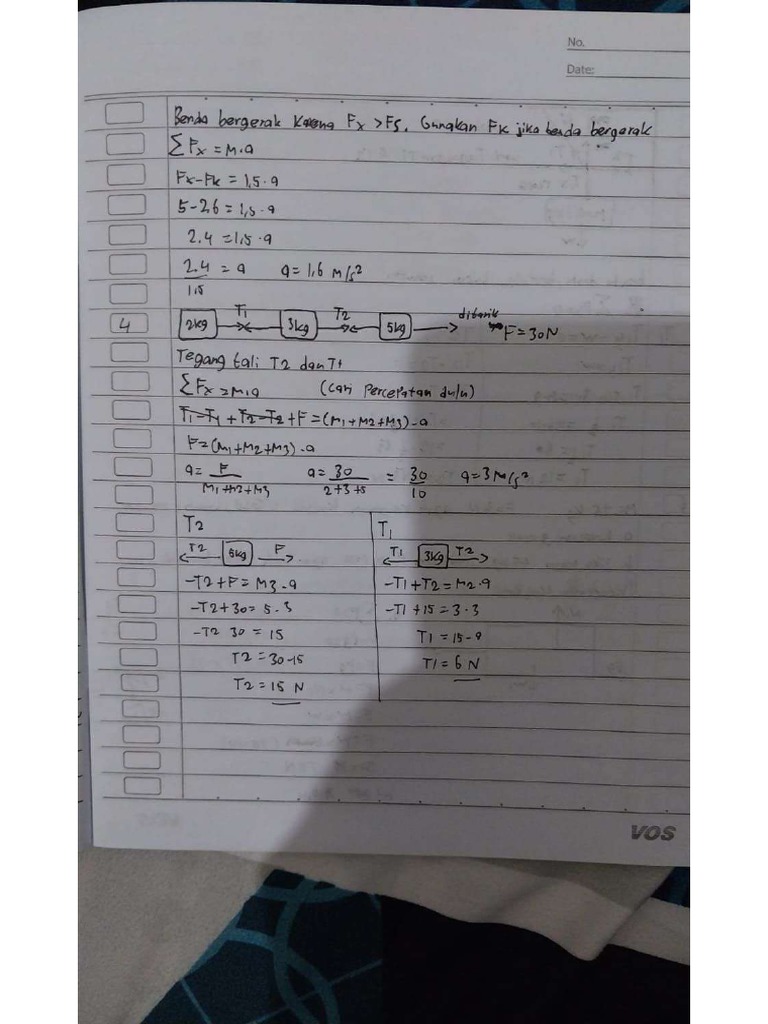 No.
Date:
Benda bergerak karena Fx > Fs. Gunakan Fk jika benda bergerak
ΣFx = M.a
Fx-Fk = 1,5.a
5-26 = 1,5.a
2.4 = 1,5.a
2.4/1,5 = a a = 1,6 M/s²
4 2kg T1 3kg T2 5kg ditarik F=30N
Tegang tali T2 dan T1
ΣFx = M.a (cari percepatan dulu)
T1-T1 + T2-T2 + F = (M1+M2+M3).a
F = (M1+M2+M3).a
a = F/M1+M2+M3 a = 30/2+3+5 = 30/10 a = 3 M/s²
T2
T2 5kg F
-T2+F = M3.a
-T2+30 = 5.3
-T2 30 = 15
T2 = 30-15
T2 = 15 N
T1
T1 3kg T2
-T1+T2 = M2.a
-T1+15 = 3.3
T1 = 15-9
T1 = 6 N
VOS